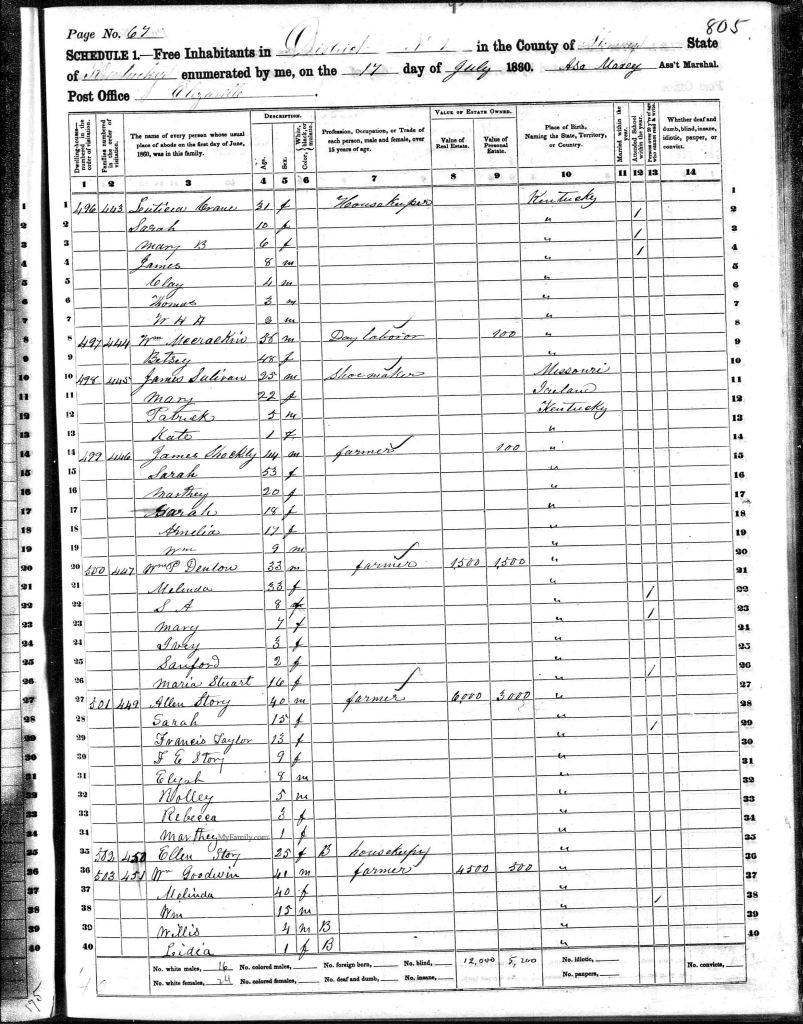 Page No. 67
805
SCHEDULE 1.—Free Inhabitants in District No 1 in the County of State
of Kentucky enumerated by me, on the 17 day of July 1860. Asa Maxey Ass't Marshal.
Post Office
DESCRIPTION.
VALUE OF ESTATE OWNED.
Dwelling-houses—numbered in the order of visitation.
Families numbered in the order of visitation.
The name of every person whose usual place of abode on the first day of June, 1860, was in this family.
Age.
Sex.
Color, White, black, or mulatto.
Profession, Occupation, or Trade of each person, male and female, over 15 years of age.
Value of Real Estate.
Value of Personal Estate.
Place of Birth, Naming the State, Territory, or Country.
Married within the year.
Attended School within the year.
Persons over 20 y'rs of age who cannot read & write.
Whether deaf and dumb, blind, insane, idiotic, pauper, or convict.
1 2 3 4 5 6 7 8 9 10 11 12 13 14
1 496 443 Crane 31 f Housekeeper Kentucky 1
2 Sarah 10 f " 1 2
3 Mary B 6 f " 1 3
4 James 8 m " 1 4
5 Clay 4 m " 5
6 Thomas 3 m " 6
7 W H A 3 m " 7
8 497 444 Wm Mccrackin 56 m Day labror 100 " 8
9 Betsey 48 f " 9
10 498 445 James Sulivan 25 m Shoemaker Missouri 10
11 Mary 22 f Ireland 11
12 Patrick 5 m Kentucky 12
13 Kate 1 f " 13
14 499 446 James Shockly 44 m farmer 100 " 14
15 Sarah 53 f " 15
16 Marthey 20 f " 16
17 Sarah 18 f " 17
18 Amelia 17 f " 18
19 Wm 9 m " 19
20 500 447 Wm P Denton 33 m farmer 1,500 1,500 " 20
21 Melinda 33 f " 21
22 S A 8 f " 1 22
23 Mary 7 f " 1 23
24 Ivey 3 f " 24
25 Sanford 2 f " 25
26 Maria Stuart 16 f " 1 26
27 501 449 Allen Story 40 m farmer 6,000 3,000 " 27
28 Sarah 15 f " 28
29 Francis Taylor 13 f " 1 29
30 F E Story 9 f " 30
31 8 m " 31
32 5 m " 32
33 Rebecca 3 f " 33
34 Marthey MyFamily.com 1 f " 34
35 502 450 Ellen Story 25 f B housekeepg " 35
36 503 451 Wm Goodwin 41 m farmer 4500 500 " 36
37 Melinda 40 f " 37
38 Wm 15 m " 1 38
39 Willis 4 m B " 39
40 Lidia 1 f B " 40
No. white males, 16 No. colored males, No. foreign born, No. blind, 12,000 5,200 No. idiotic, No. convicts,
No. white females, 24 No. colored females, No. deaf and dumb, No. insane, No. paupers,